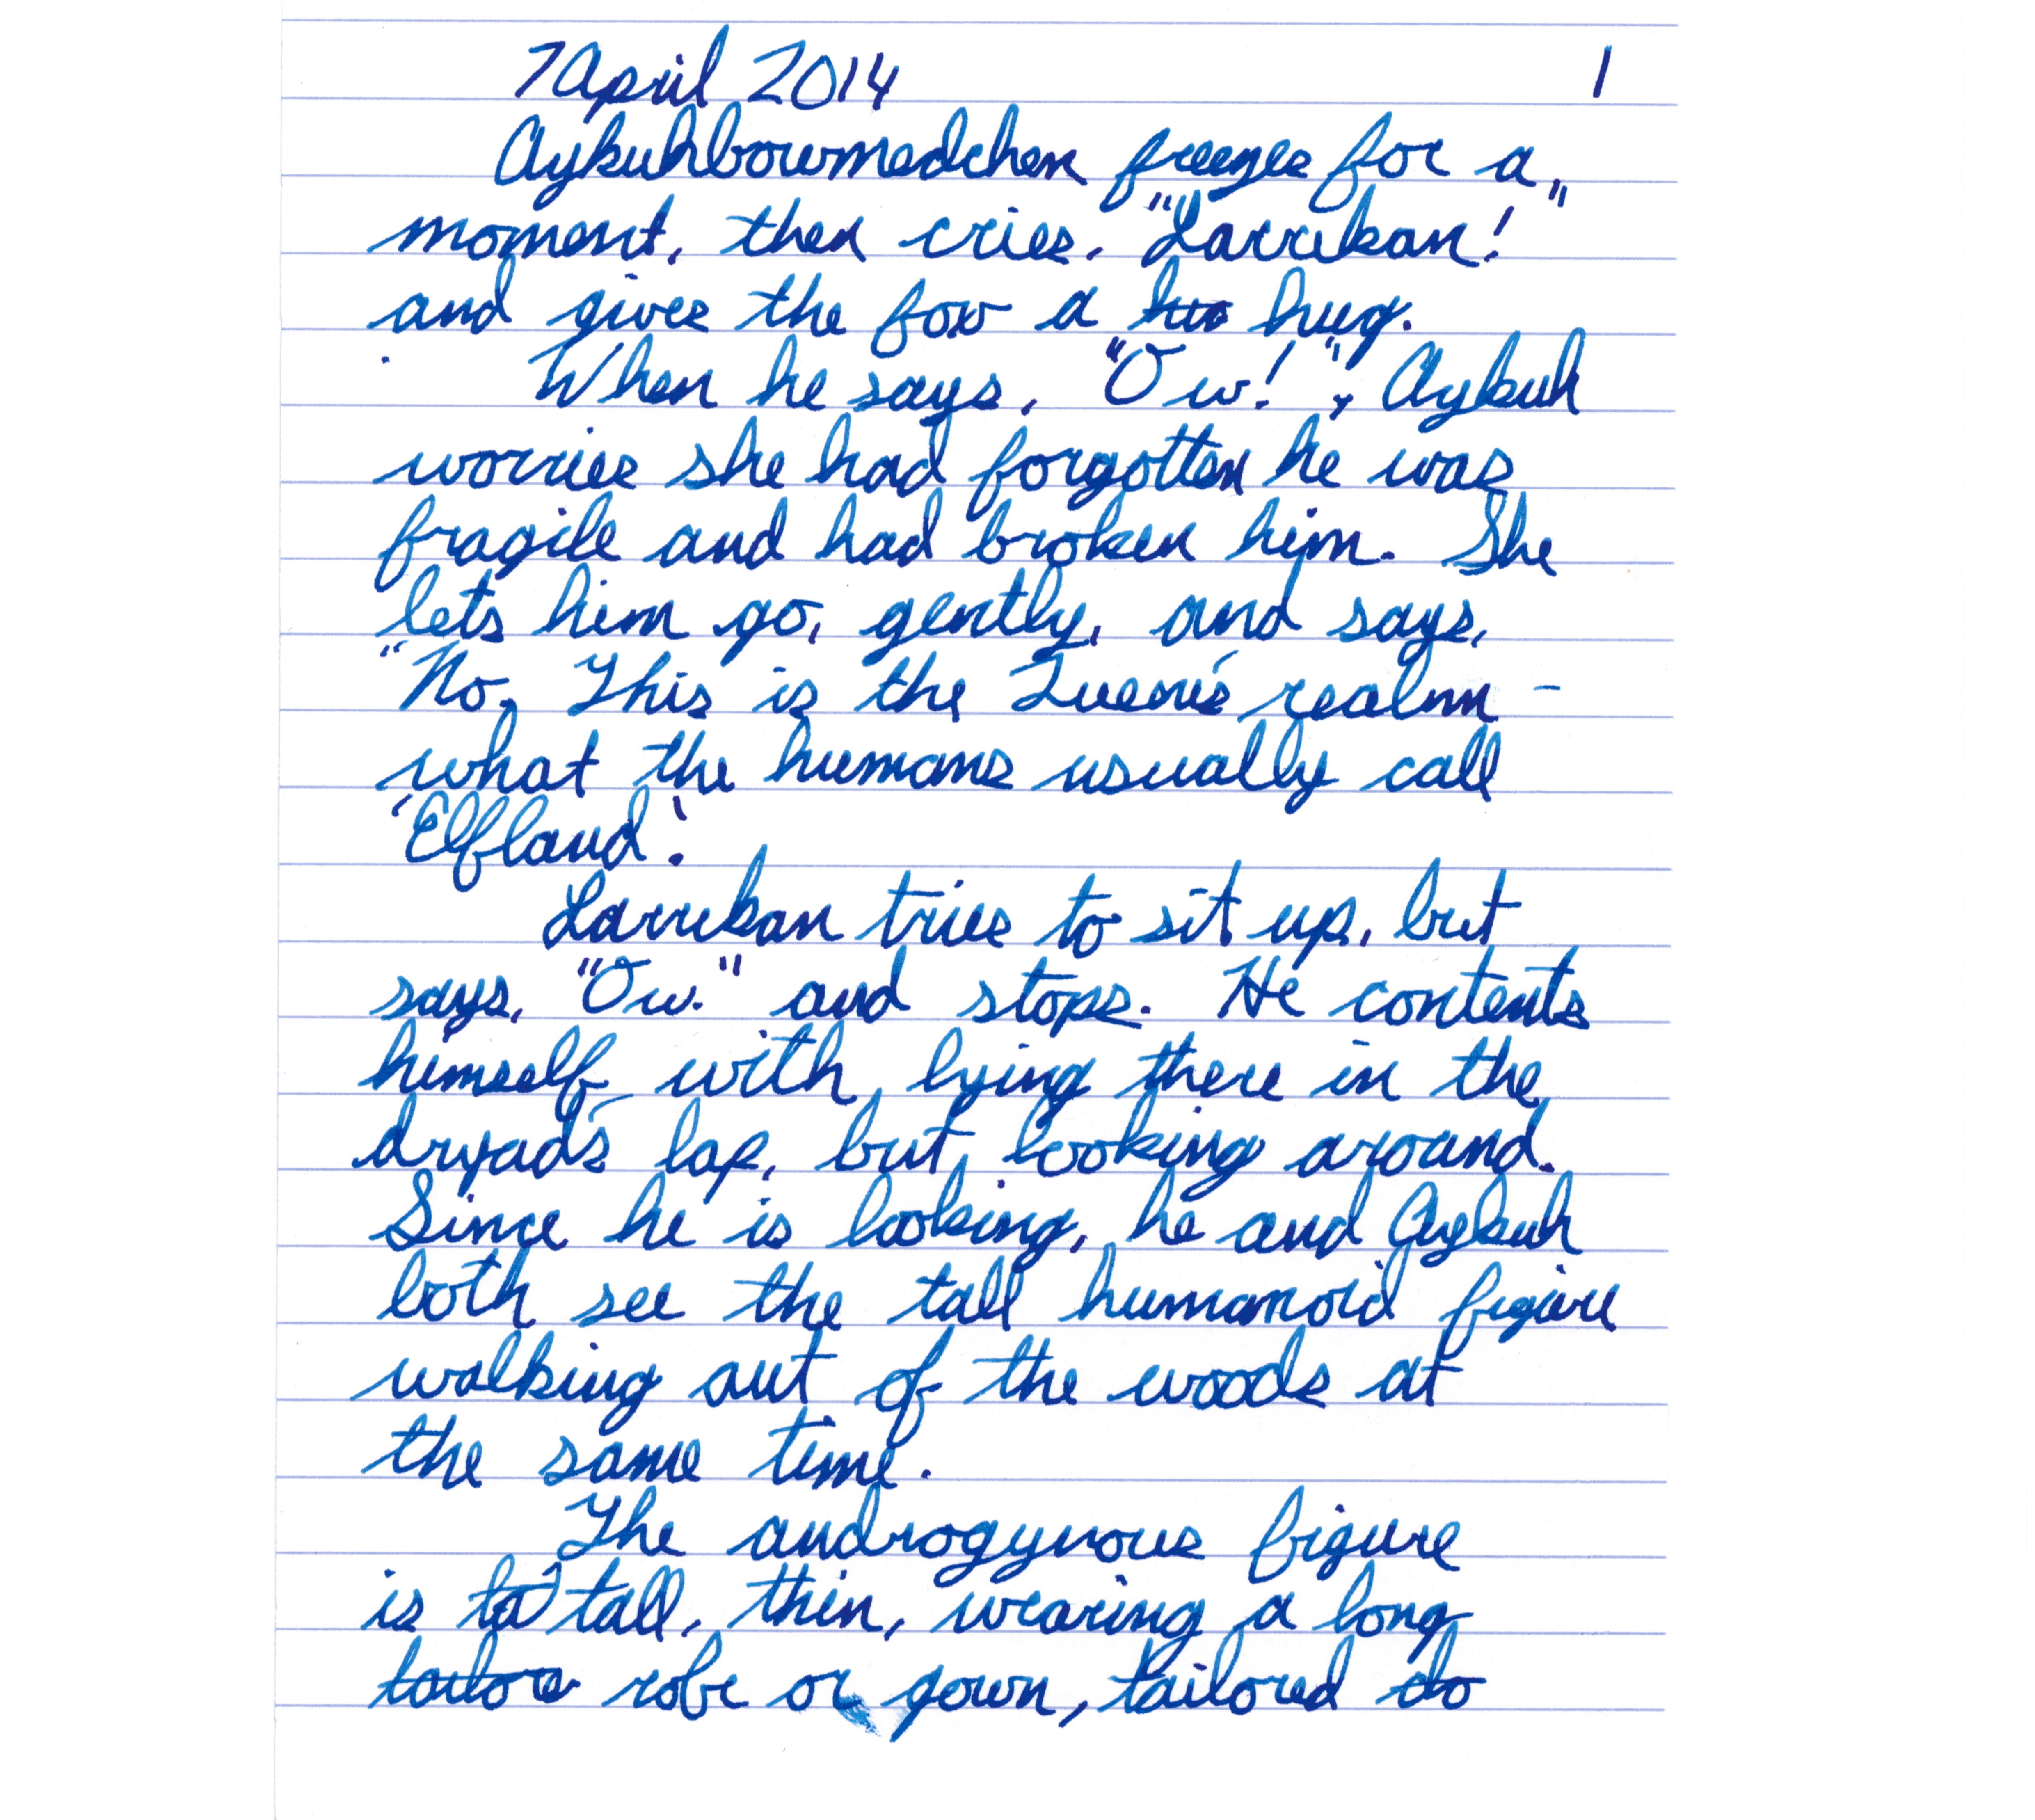 7 April 2014 1
Aykuhbowmedchen freezes for a
moment, then cries, "Larrikan!"
and gives the fox a hug.
When he says, "Ow!", Aykuh
worries she had forgotten he was
fragile and had broken him. She
lets him go, gently, and says,
"No. This is the Queen's realm –
what the humans usually call
'Elfland'.
Larrikan tries to sit up, but
says, "Ow." and stops. He contents
himself with lying there in the
dryad's lap, but looking around.
Since he is looking, he and Aykuh
both see the tall humanoid figure
walking out of the woods at
the same time.
The androgynous figure
is ta tall, thin, wearing a long
tailore robe or gown, tailored do